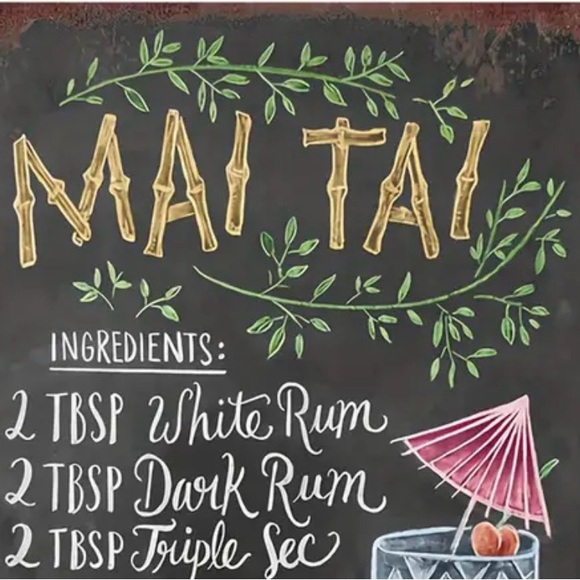 MAI TAI
INGREDIENTS:
2 TBSP White Rum
2 TBSP Dark Rum
2 TBSP Triple Sec